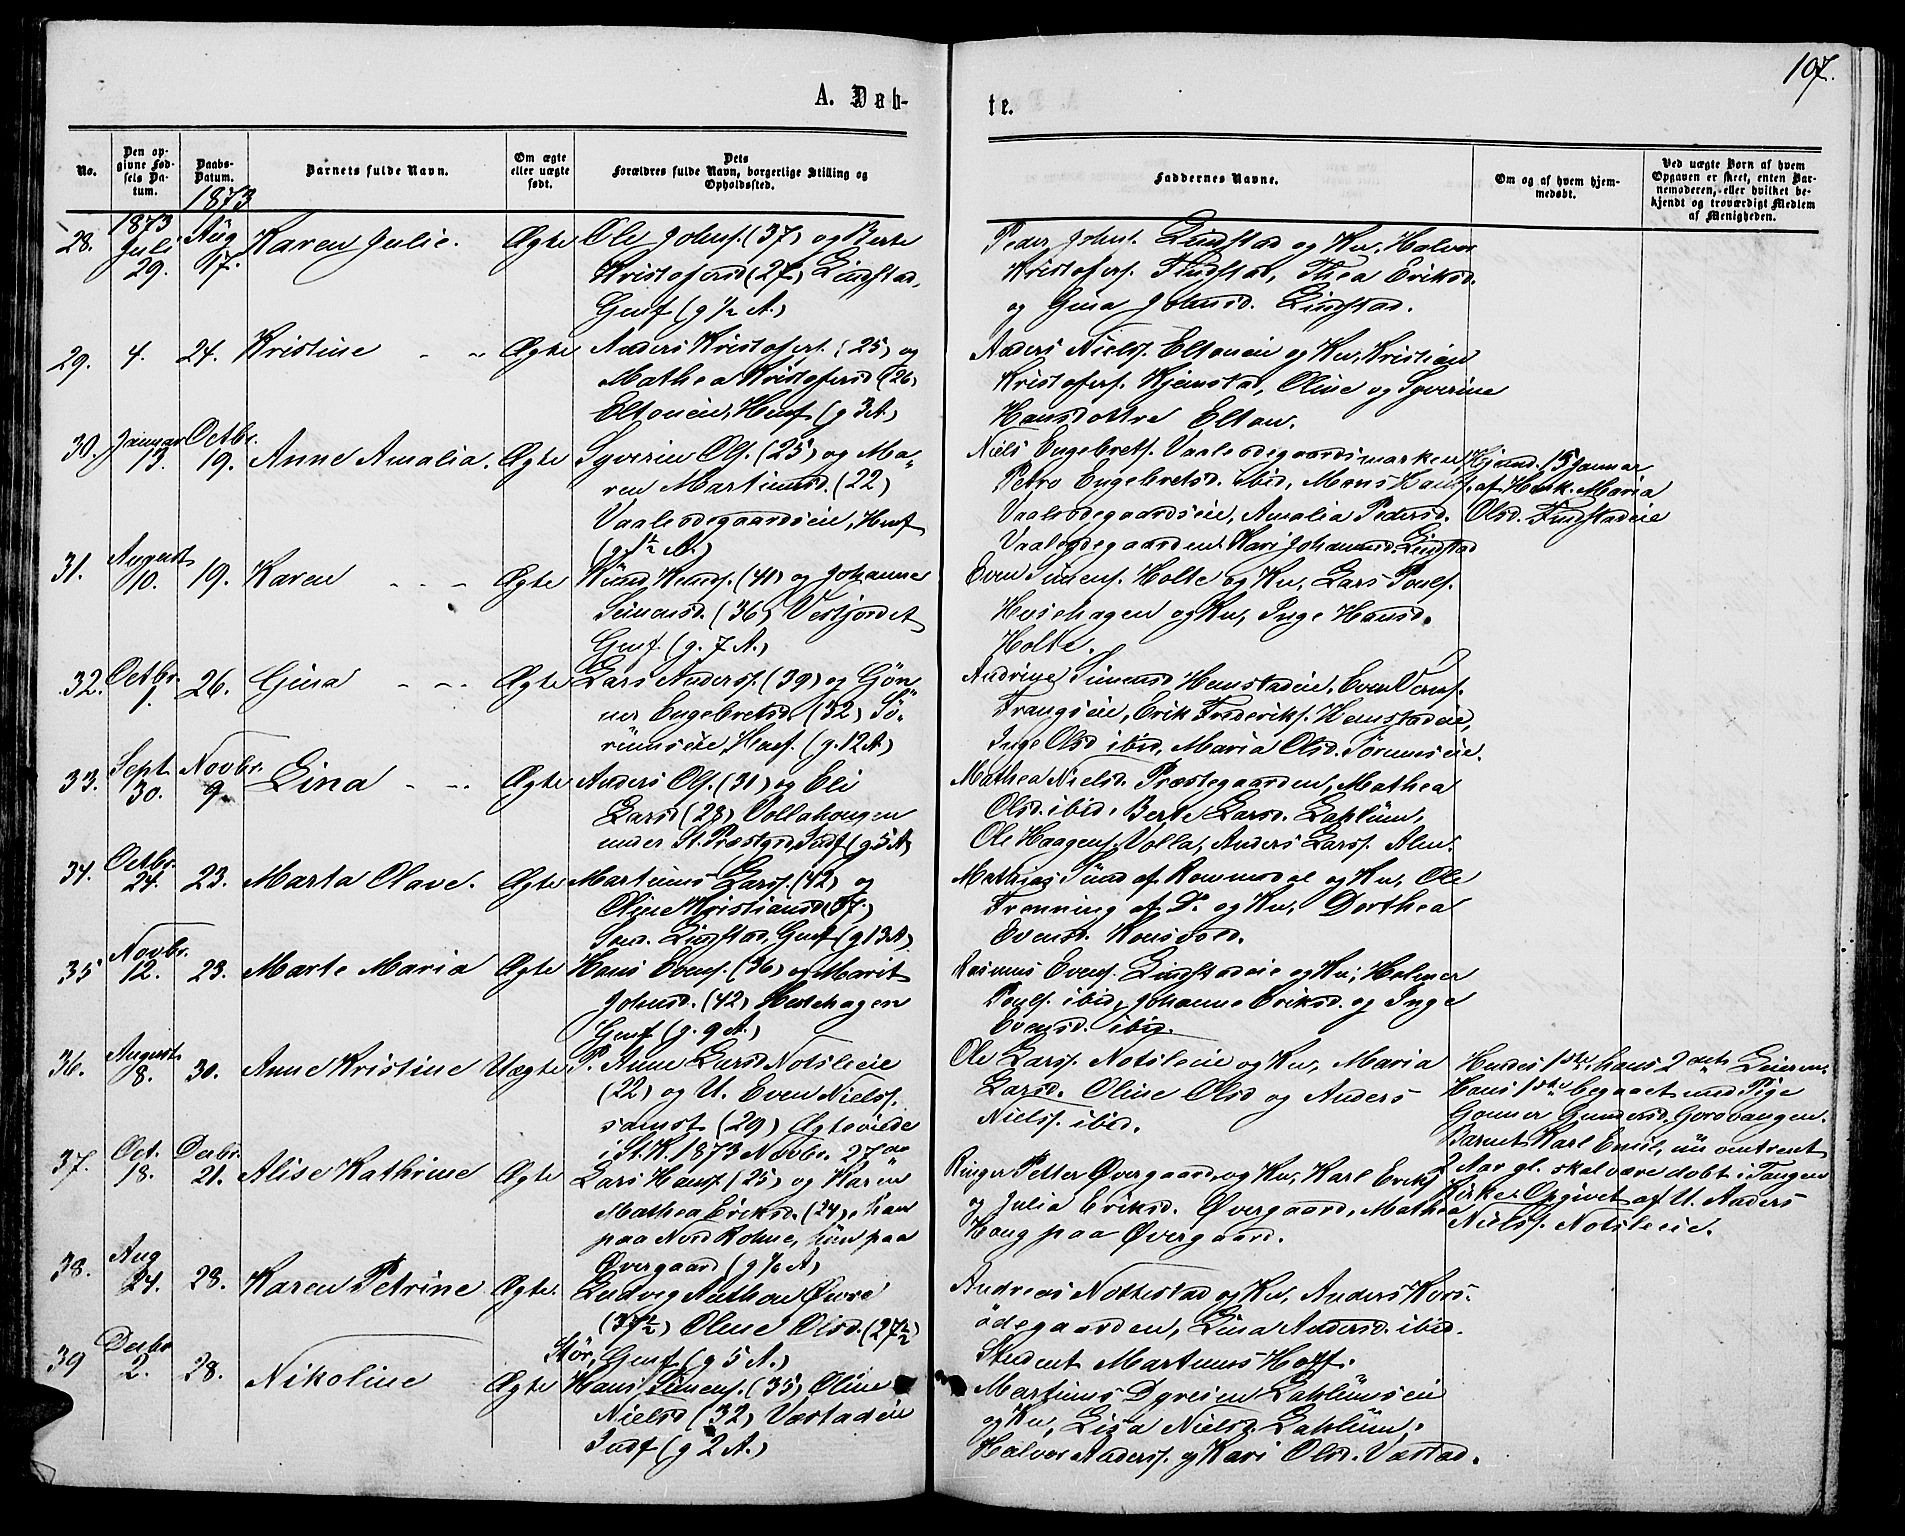 107.
A. Døb-
te.
No.
Den op-
givne Fød-
sels Da-
tum.
Daabs-
Datum.
Barnets fulde Navn.
Om ægte
eller uægte
født.
Dets
Forældres fulde Navn, borgerlige Stilling og
Opholdssted.
Faddernes Navne.
Om og af hvem hjem-
medøbt.
Ved uægte Børn af hvem
Opgaven er skeet, enten Bar-
nemoderen, eller hvilket be-
kjendt og troværdigt Medlem
af Menigheden.
1873
1873
28. Juli 29. Aug 17. Karen Julie. Ægte Ole Johnsf. (37) og Berte
Kristofersd (27) Lindstad,
Gusf (g ½ A.)
Peder Johns. Lindstad og Ku, Halvor
Kristofersf. Findstad, Thea Eriksd.
og Gina Johnsd. Lindstad.
29. 4. 24. Kristine - - Ægte Anders Kristofersf. (25) og
Mathea Kristofersd (26)
Eltoneie, Husf (g 3 A)
Anders Nielsf. Eltoneie og Ku, Kristian
Kristofersf. Kjemstad, Oline og Syverine
Hansdottre Elton.
30. Januar 13. Octbr. 19. Anne Amalia. Ægte Syverin Olsf. (25) og Ma-
ren Martinusd. (22)
Vaalsodegaardseie, Husf
(g. 1½ A.)
Niels Engebretsf. Vaalsodegaardsmarken
Petro Engebretsd. ibid, Mons Hansf.
Vaalsodegaardseie, Amalia Pedersd.
Vaalsodegaarden. Kari Johannesd. Lindstad
Hjemd. 15 Januar
af Husk. Maria
Olsd. Findstadeie
31. August 10. 19. Karen - - - Ægte Knud Knudsf. (41) og Johanne
Simensd. (36) Vestjordet
Gusf. (g. 7 A.)
Even Simensf. Holte og Ku, Lars Poulsf.
Hvisehagen og Ku, Inge Hansd.
Holte.
32. Octbr. 1. 26. Gina - - - Ægte Lars Andersf. (39) og Gøn-
ner Engebretsd (32) Sö-
rumseie, Husf. (g. 12 A)
Andrine Simensd Hemstadeie, Even
Trangseie, Erik Frederiksf. Hemstadeie,
Inge Olsd ibid, Maria Olsd. Sörumseie.
33. Sept 30. Novbr. 9 Lina - - Ægte Anders Olsf. (31) og Eli
Larsd (28) Vollahougen
under St. Præstgrd, Indf (g 5 A)
Mathea Nielsd. Præstegaarden, Mathea
Olsd. ibid, Berte Larsd. Laklüm,
Ole Haagensf. Volla, Anders Larsf. Alm.
34. Octbr. 24. 23. Marta Olave. Ægte Martinus Larsf. (42) og
Oline Kristiansd (37)
Sønd. Lindstad, Gusf (g 13 A)
Mathias Sünd af Rommedal og Ku, Ole
Frenning af D. og Ku, Dorthea
Evensd. Konsvold.
35 Novbr. 12. 23. Marte Maria Ægte Hans Evensf. (36) og Marit
Johnsd. (42) Hvisehagen
Gusf (g. 9 A.)
Rasmus Evensf. Lindstadeie og Ku, Holmer
Poulsf. ibid, Johanne Eriksd. og Inge
Evensd. ibid.
36. August 8. 30. Anne Kristine Uægte P. Anne Larsd Notsleie
(22) og U. Even Nielsf.
samst (29) Ægteviede
i St. K. 1873 Novbr. 27de
Ole Larsf. Notsleie og Ku, Maria
Larsd. Oline Olsd og Anders
Nielsf. ibid.
Hendes 1ste, hans 2det Leierm.
Hans 1ste begaaet med Pige
Gonner Gundersd. Gorobangen.
Barnet Karl Emil, nu omtrent
2 Aar gl. skal være döbt i Tangen
Kirke. Opgivet af U. Anders
Nielsf. Notsleie.
37. Oct. 18. Decbr. 21. Alise Kathrine Ægte Lars Hansf (25) og Karen
Mathea Eriksd. (24), han
paa Nord Kohne, hün paa
Øvergaard (g 1/6 A)
Ringer Petter Øvergaard og Ku, Karl Eriksf
og Julia Eriksd. Øvergaard, Mathea
Houg paa Øvergaard.
38. Aug 24. 28. Karen Petrine Ægte. Ludvig Anthon Øwre
(37½) Oline Olsd. (27½)
Stör, Gusf (g 5 A.)
Andreas Nottestad og Ku, Anders Kors-
ödegaarden, Lina Andersd. ibid.
Student Martinus Hoff.
39 Decbr 2. 28. Nikoline Ægte Hans Simensf. (35) Oline
Nielsd (32) Væstadeie
Indf (g 2 A.)
Martinus Dyresen Laklümseie
og Ku, Lisa Nielsd. Laklüm,
Halvor Andersf. og Kari Olsd. Væstad.